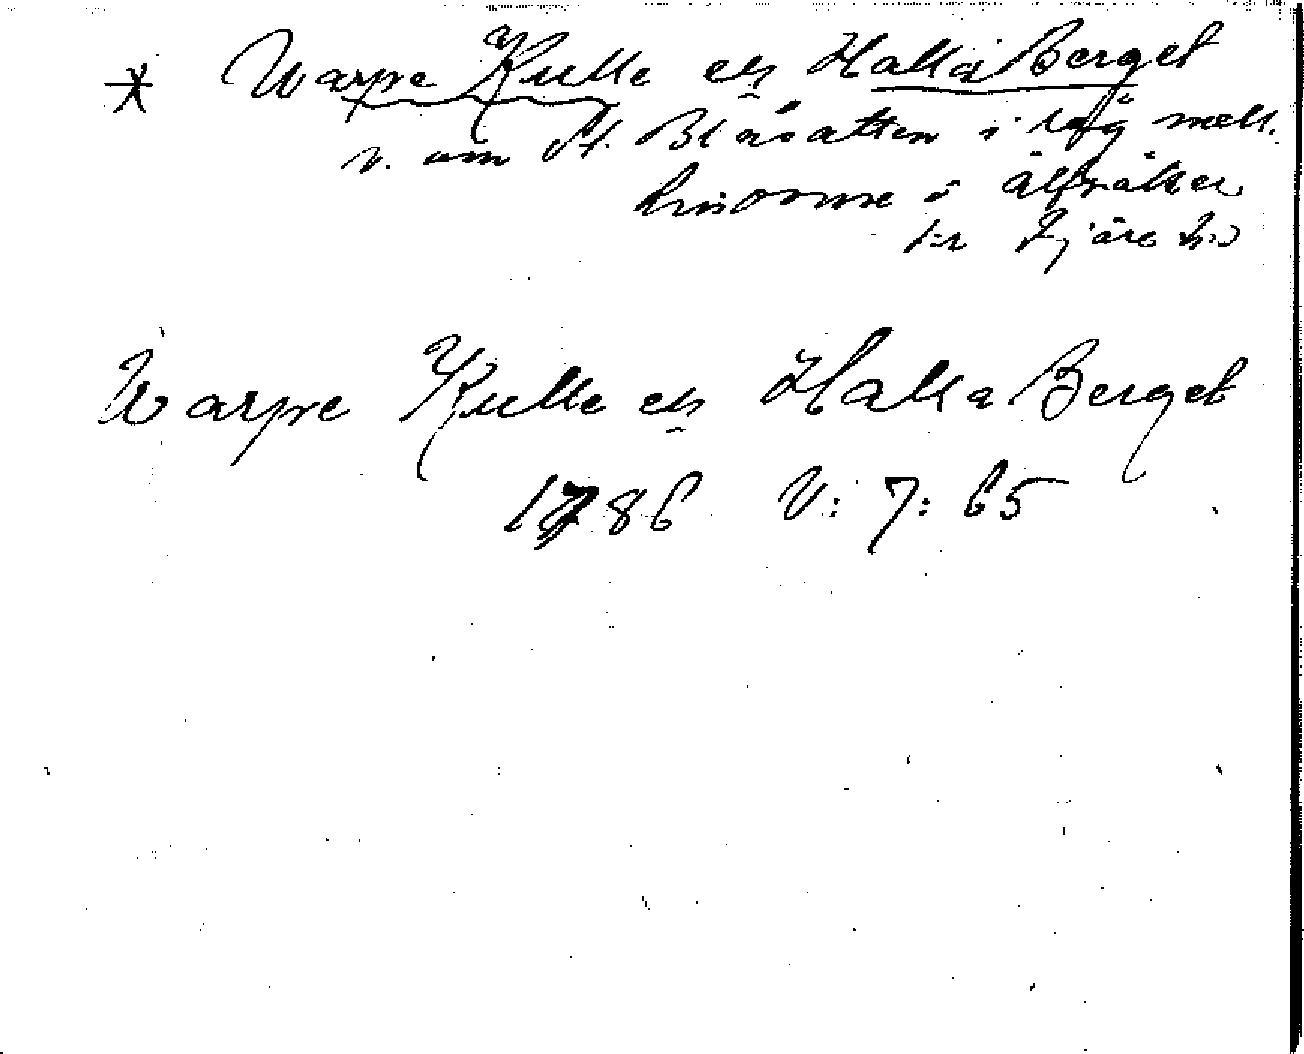 * Warpe Kulle el. Halla Berget
v. om St. Blåsatten i råg mell.
i Älfsåker
Fjäre hd
Warpe Kulle el. Halla Berget
1786 V: 7: 65